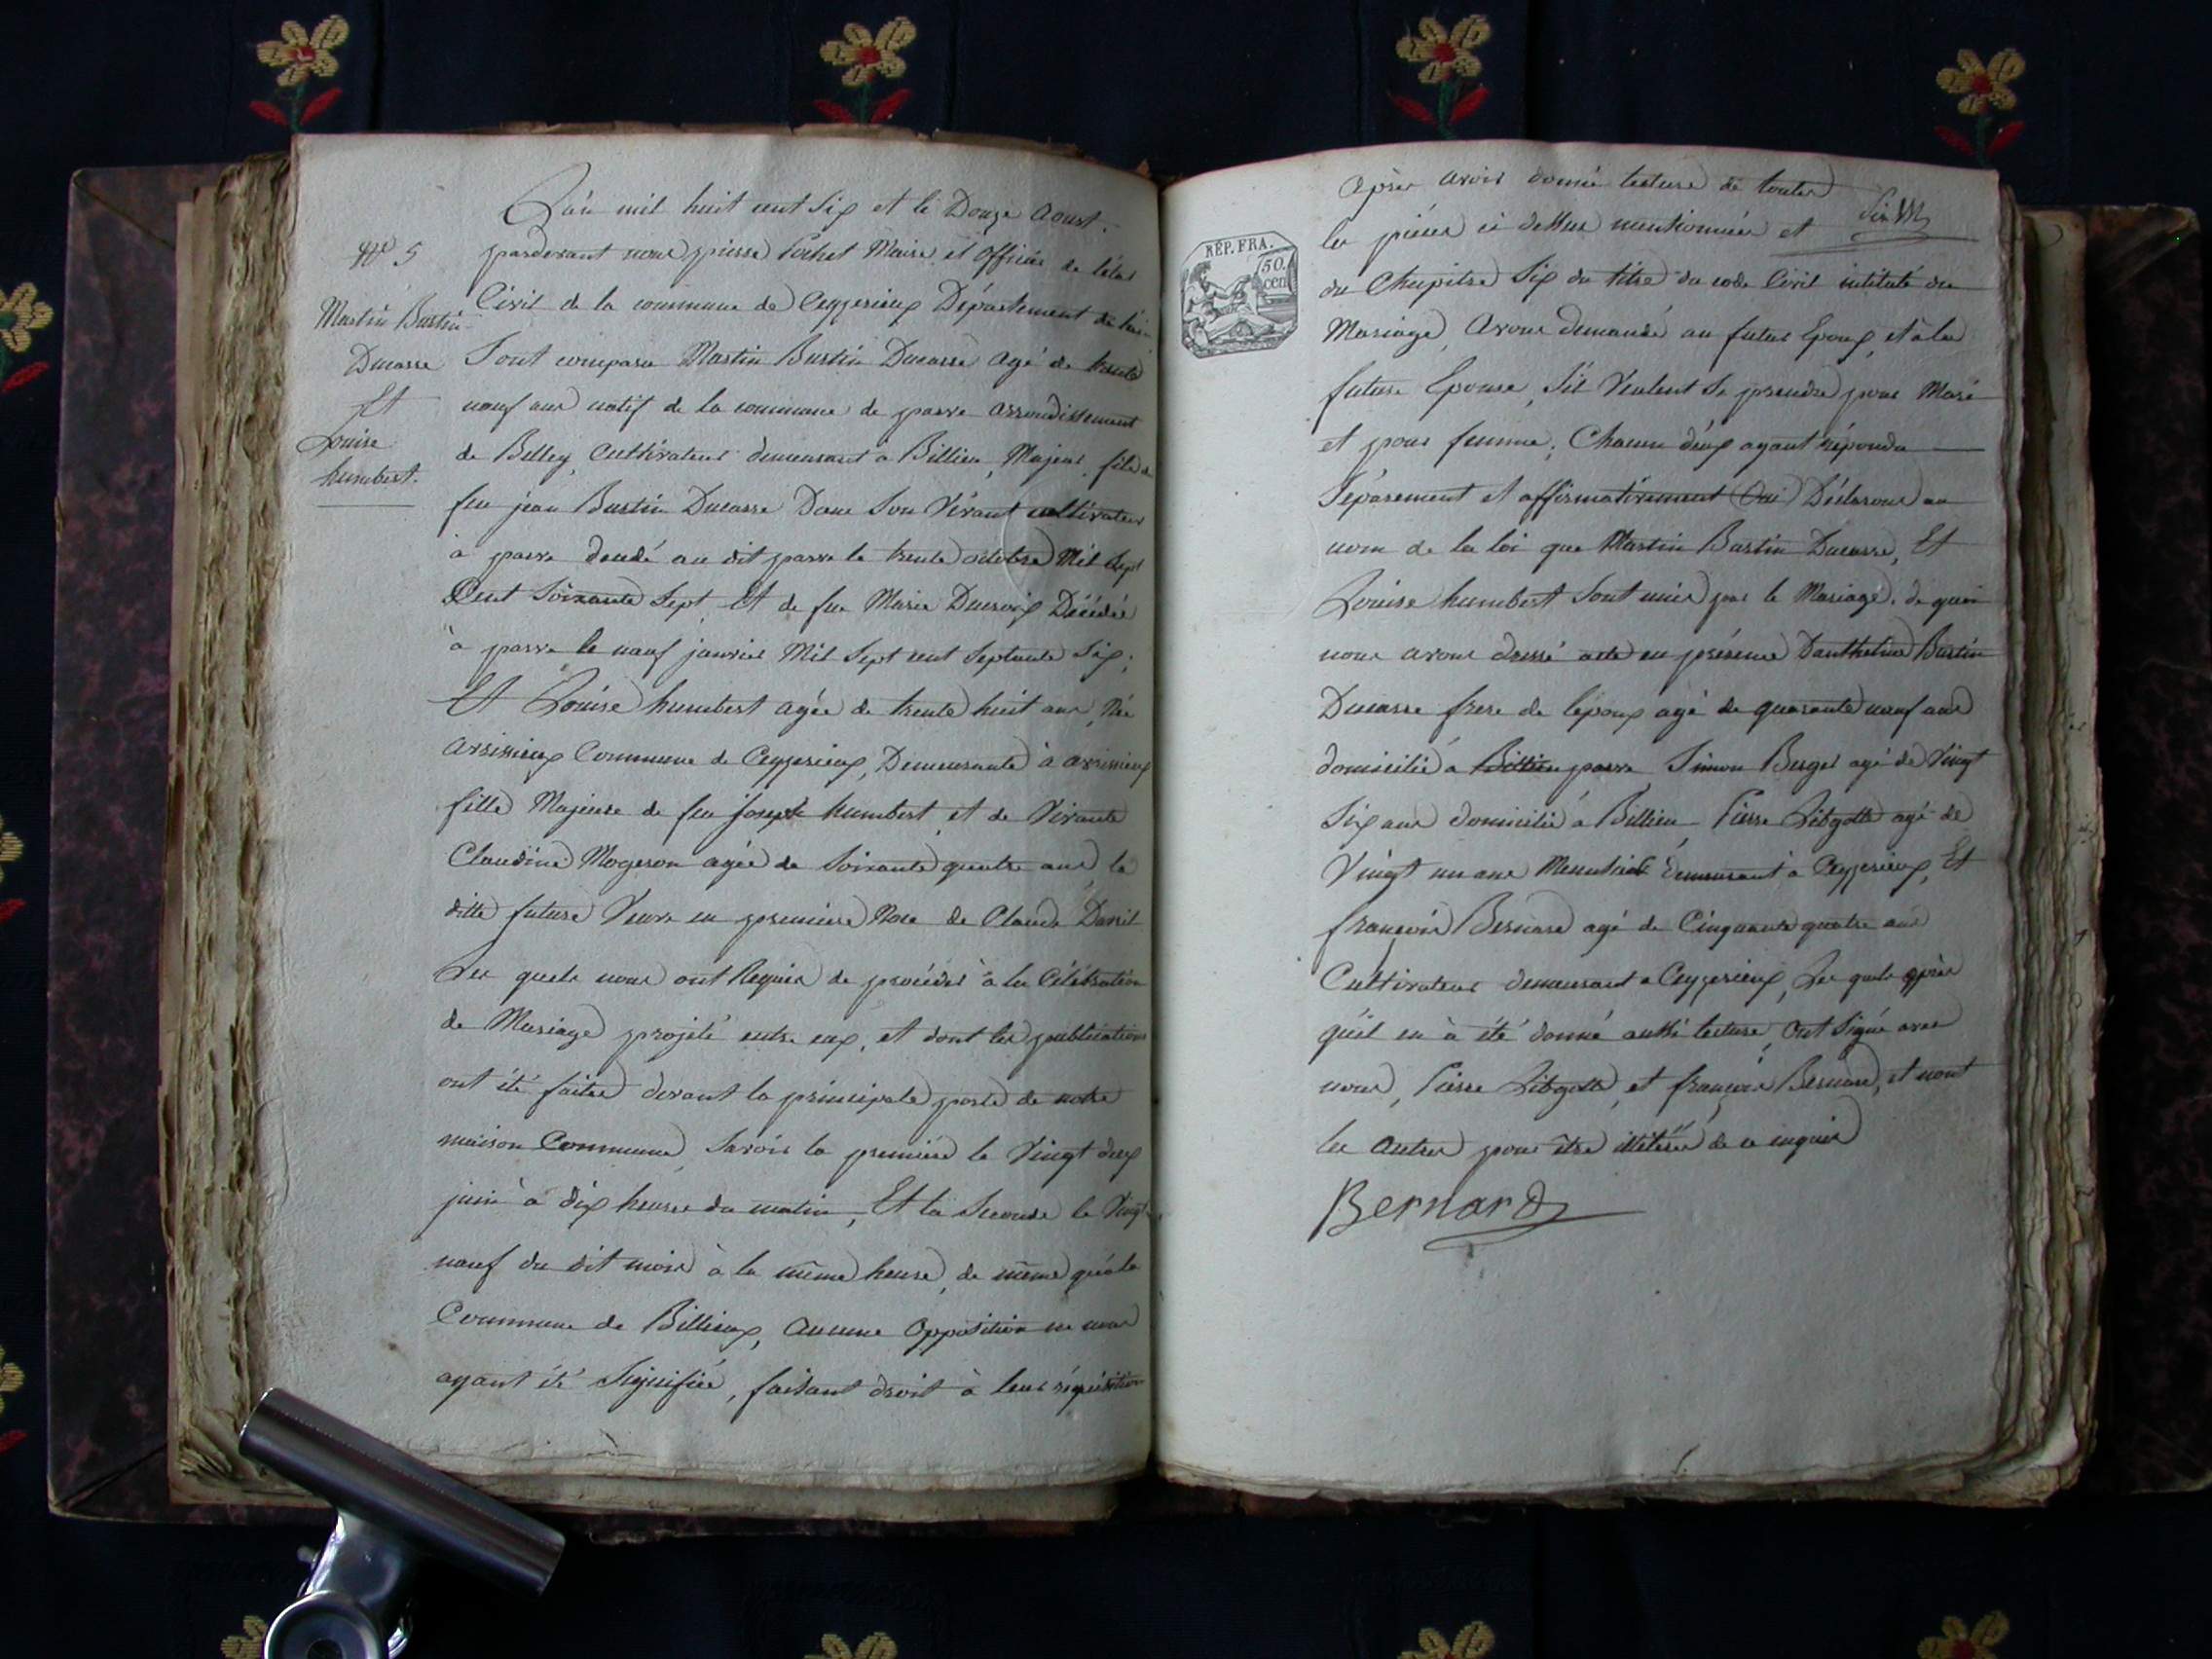 L'an mil huit cent Six et le Douze Aoust.
N° 5
pardevant nous pierre Pochet Maire et Officier de l'état
Civil de la commune de Ceyzerieux Département de l'ain
Martin Bustin
Ducasse
Et
Louise
humbert.
Sont comparu Martin Bustin Ducasse agé de trente
neuf ans natif de la commune de parve arrondissement
de Belley, Cultivateur demeurant a Billieu, Majeur, fils de
feu jean Bustin Ducasse Dans Son Vivant cultivateur
à parve décédé au dit parve le trente octobre Mil Sept
Cent Soixante Sept, Et de feu Marie Décédée
à parve le neuf janvier Mil Sept cent Septante Six;
Et Louise humbert agée de trente huit ans, Née
Commune de Ceyzerieux, Demeurante à
fille Majeure de feu joseph humbert, et de Vivante
Claudine Mogeron agée de Soixante quatre ans, la
ditte future Veuve en premiere Noce de Claude
Les quels nous ont Requis de procéder à la Célébration
de Mariage projeté entre eux, et dont les publications
ont été faites devant la principale porte de notre
maison Commune, Savoir la premiére le Vingt deux
juin à dix heures du matin, Et la Seconde le Vingt
neuf du dit mois à la même heure, de même qu'à la
Commune de Billieux, Aucune Opposition ne nous
ayant été Signifiée, faisant droit à leur réquisition
après avoir donné lecture de toutes
les piéces ci dessus mentionnées et
REP. FRA.
50.
cen
du Chapitre Six du titre du code Civil intitulé du
Mariage, Avons demandé au futur Epoux, et à la
future Epouse, S'il Veulent Se prendre pour Mari
et pour femme; Chacun d'eux ayant répondu
Séparement et affirmativement Oui Déclarons au
nom de la loi que Martin Bustin Ducasse, Et
Louise humbert Sont unis par le Mariage. de quoi
nous avons dressé acte en présence D'anthelme Bustin
Ducasse frere de l'epoux agé de quarante neuf ans
domicilié a parve Simon Berger agé de Vingt
Six ans domicilié à Billieu Pierre agé de
Vingt un ans demeurant à Ceyzerieux, Et
françois Bernard agé de Cinquante quatre ans
Cultivateur demeurant a Ceyzerieux, Les quels après
qu'il en à été donné aussi lecture, Ont Signé avec
nous, Pierre et françois Bernard, et nont
les Autres pour être illiterés de ce enquis
Bernard